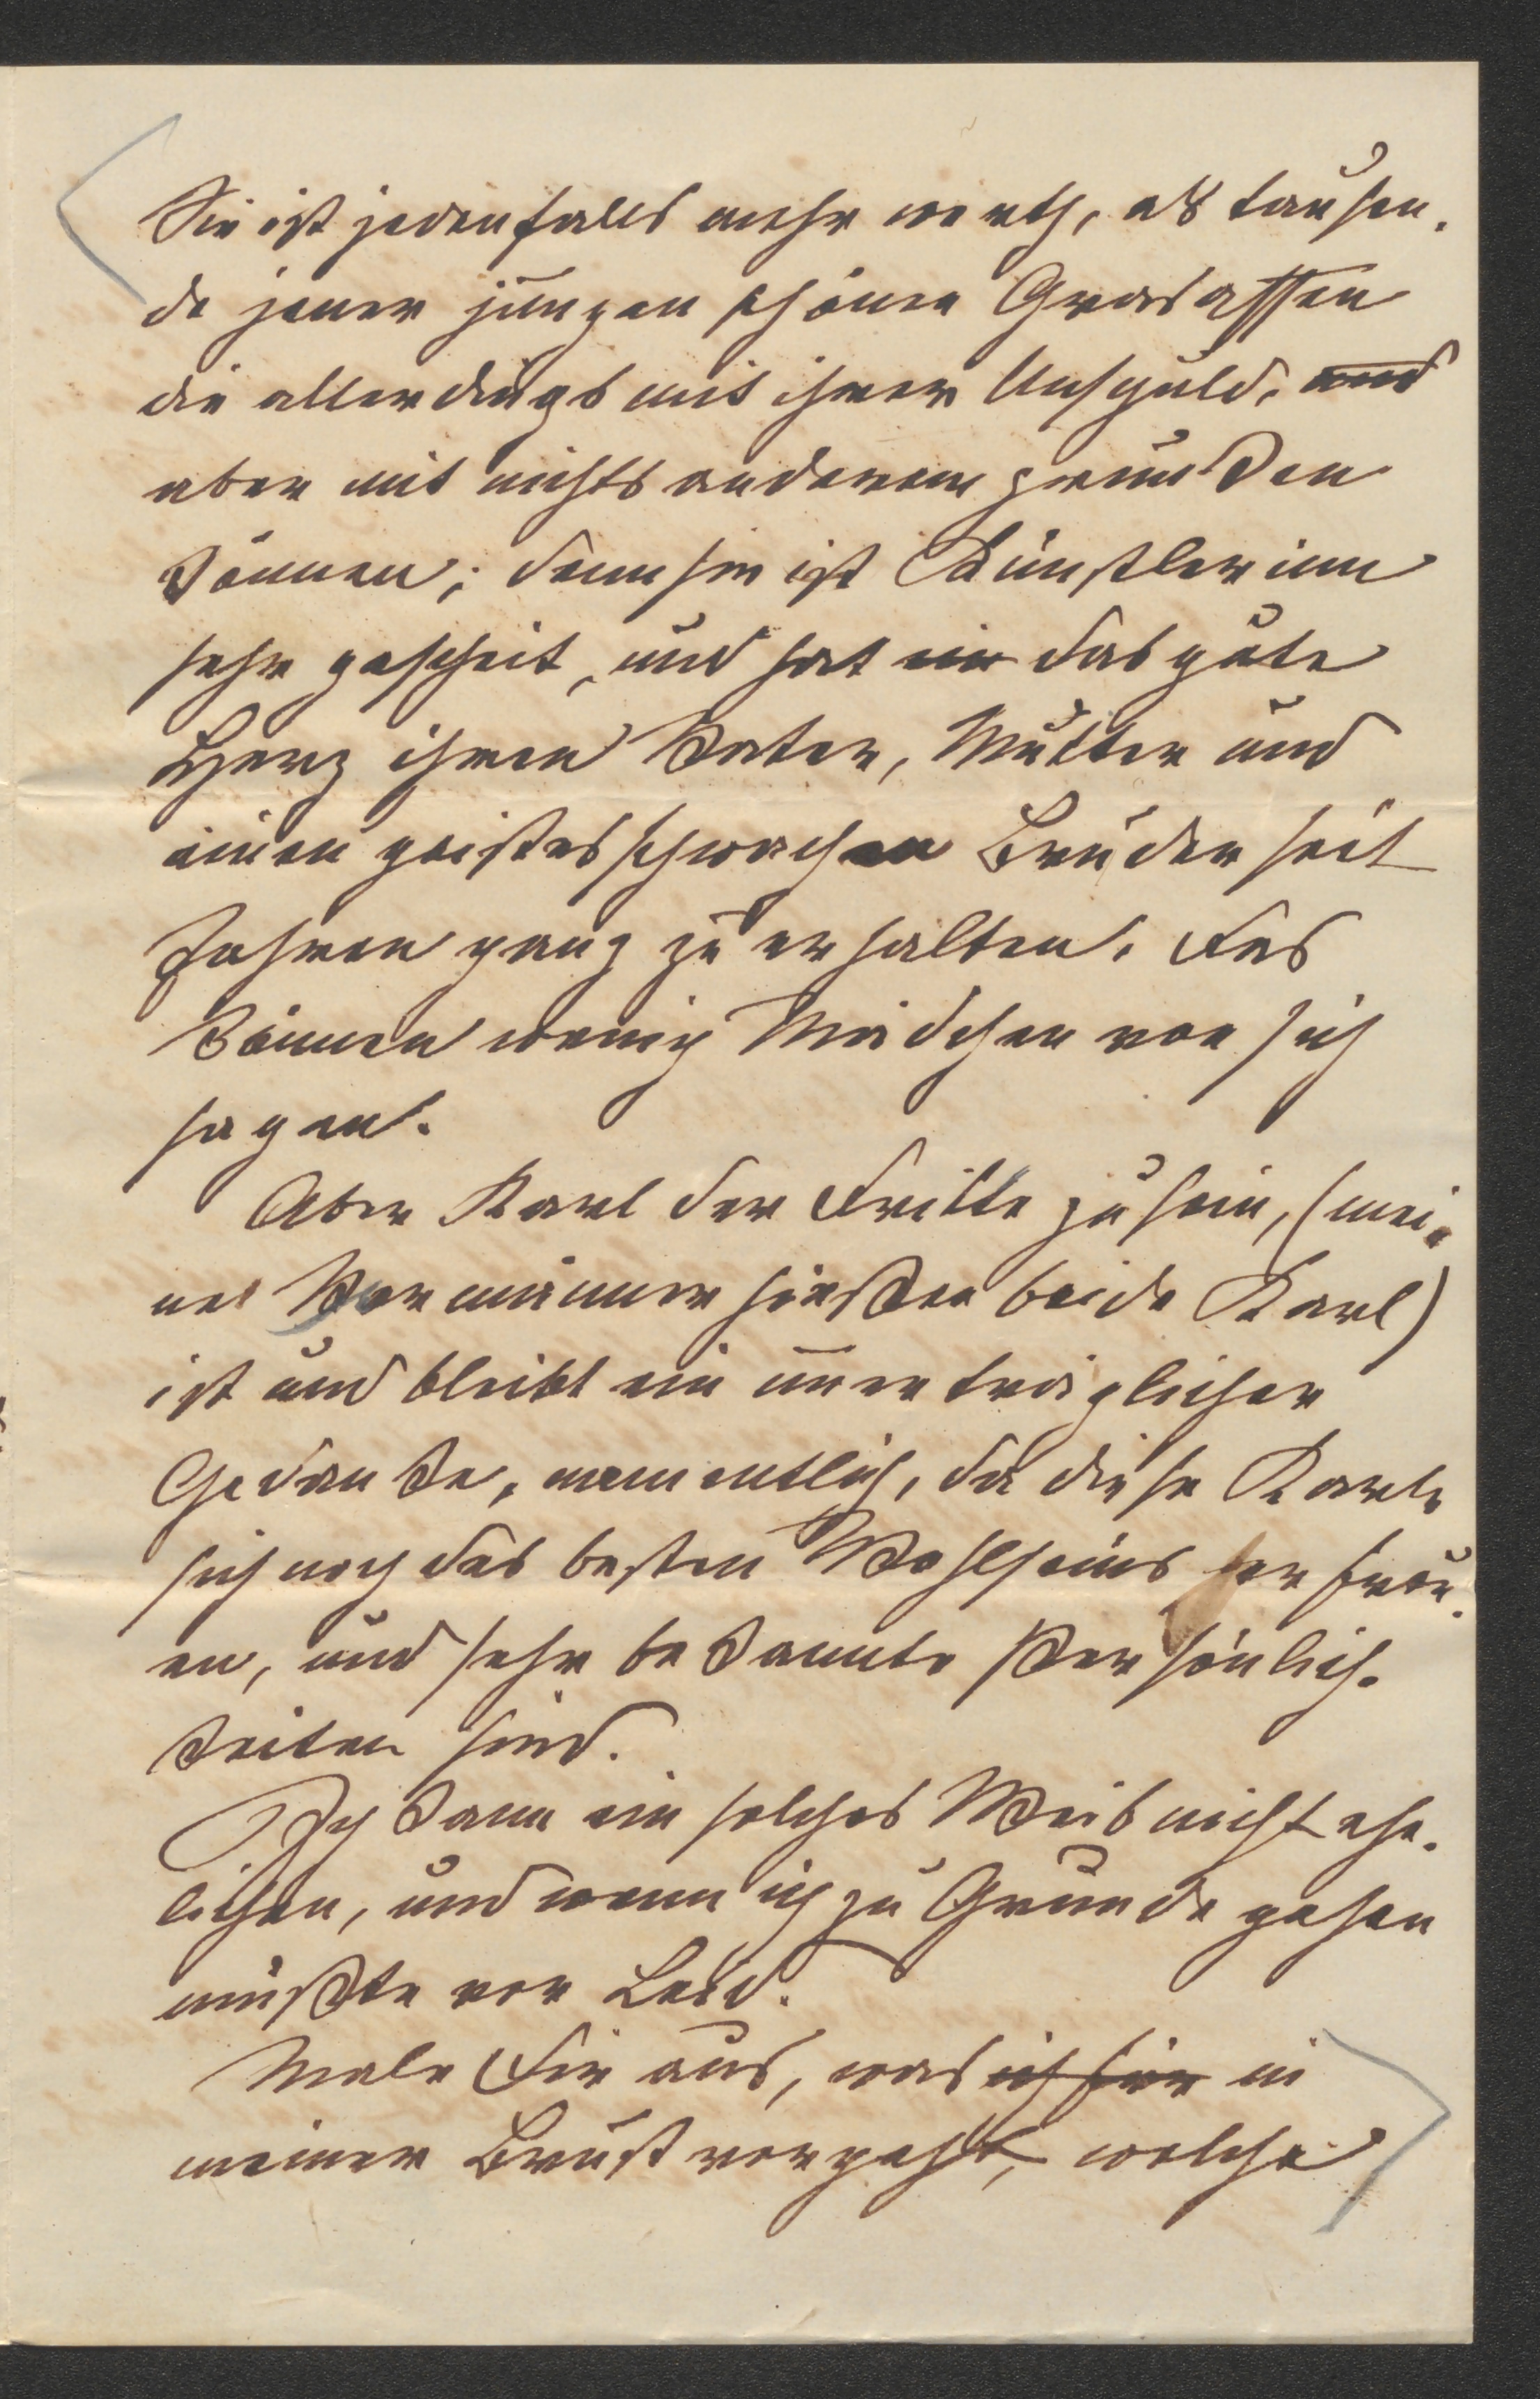 Sie ist jedenfalls mehr werth, als tausen-
de jener jungen schönen Grasaffen
die allerdings mit ihrer Unschuld, und
aber mit nichts anderem prunken
können; denn sie ist Künstlerinn
sehr gescheit, und hat ein das gute
Herz ihren Vater, Mutter und
einen geistesschwachen Bruder seit
Jahren ganz zu erhalten. Das
können wenig Mädchen von sich
sagen.
Aber Karl der Dritte zu sein, (mei-
ne Vormänner hießen beide Karl)
ist und bleibt ein unerträglicher
Gedanke, namentlich, da diese Karle
sich noch des besten Wohlseins erfreu-
en, und sehr bekannte Persönlich-
keiten sind.
Ich kann ein solches Weib nicht ehe-
lichen, und wenn ich zu Grunde gehen
müßte vor Leid.
Male Dir aus, was ich für in
meiner Brust vorgeht, welche